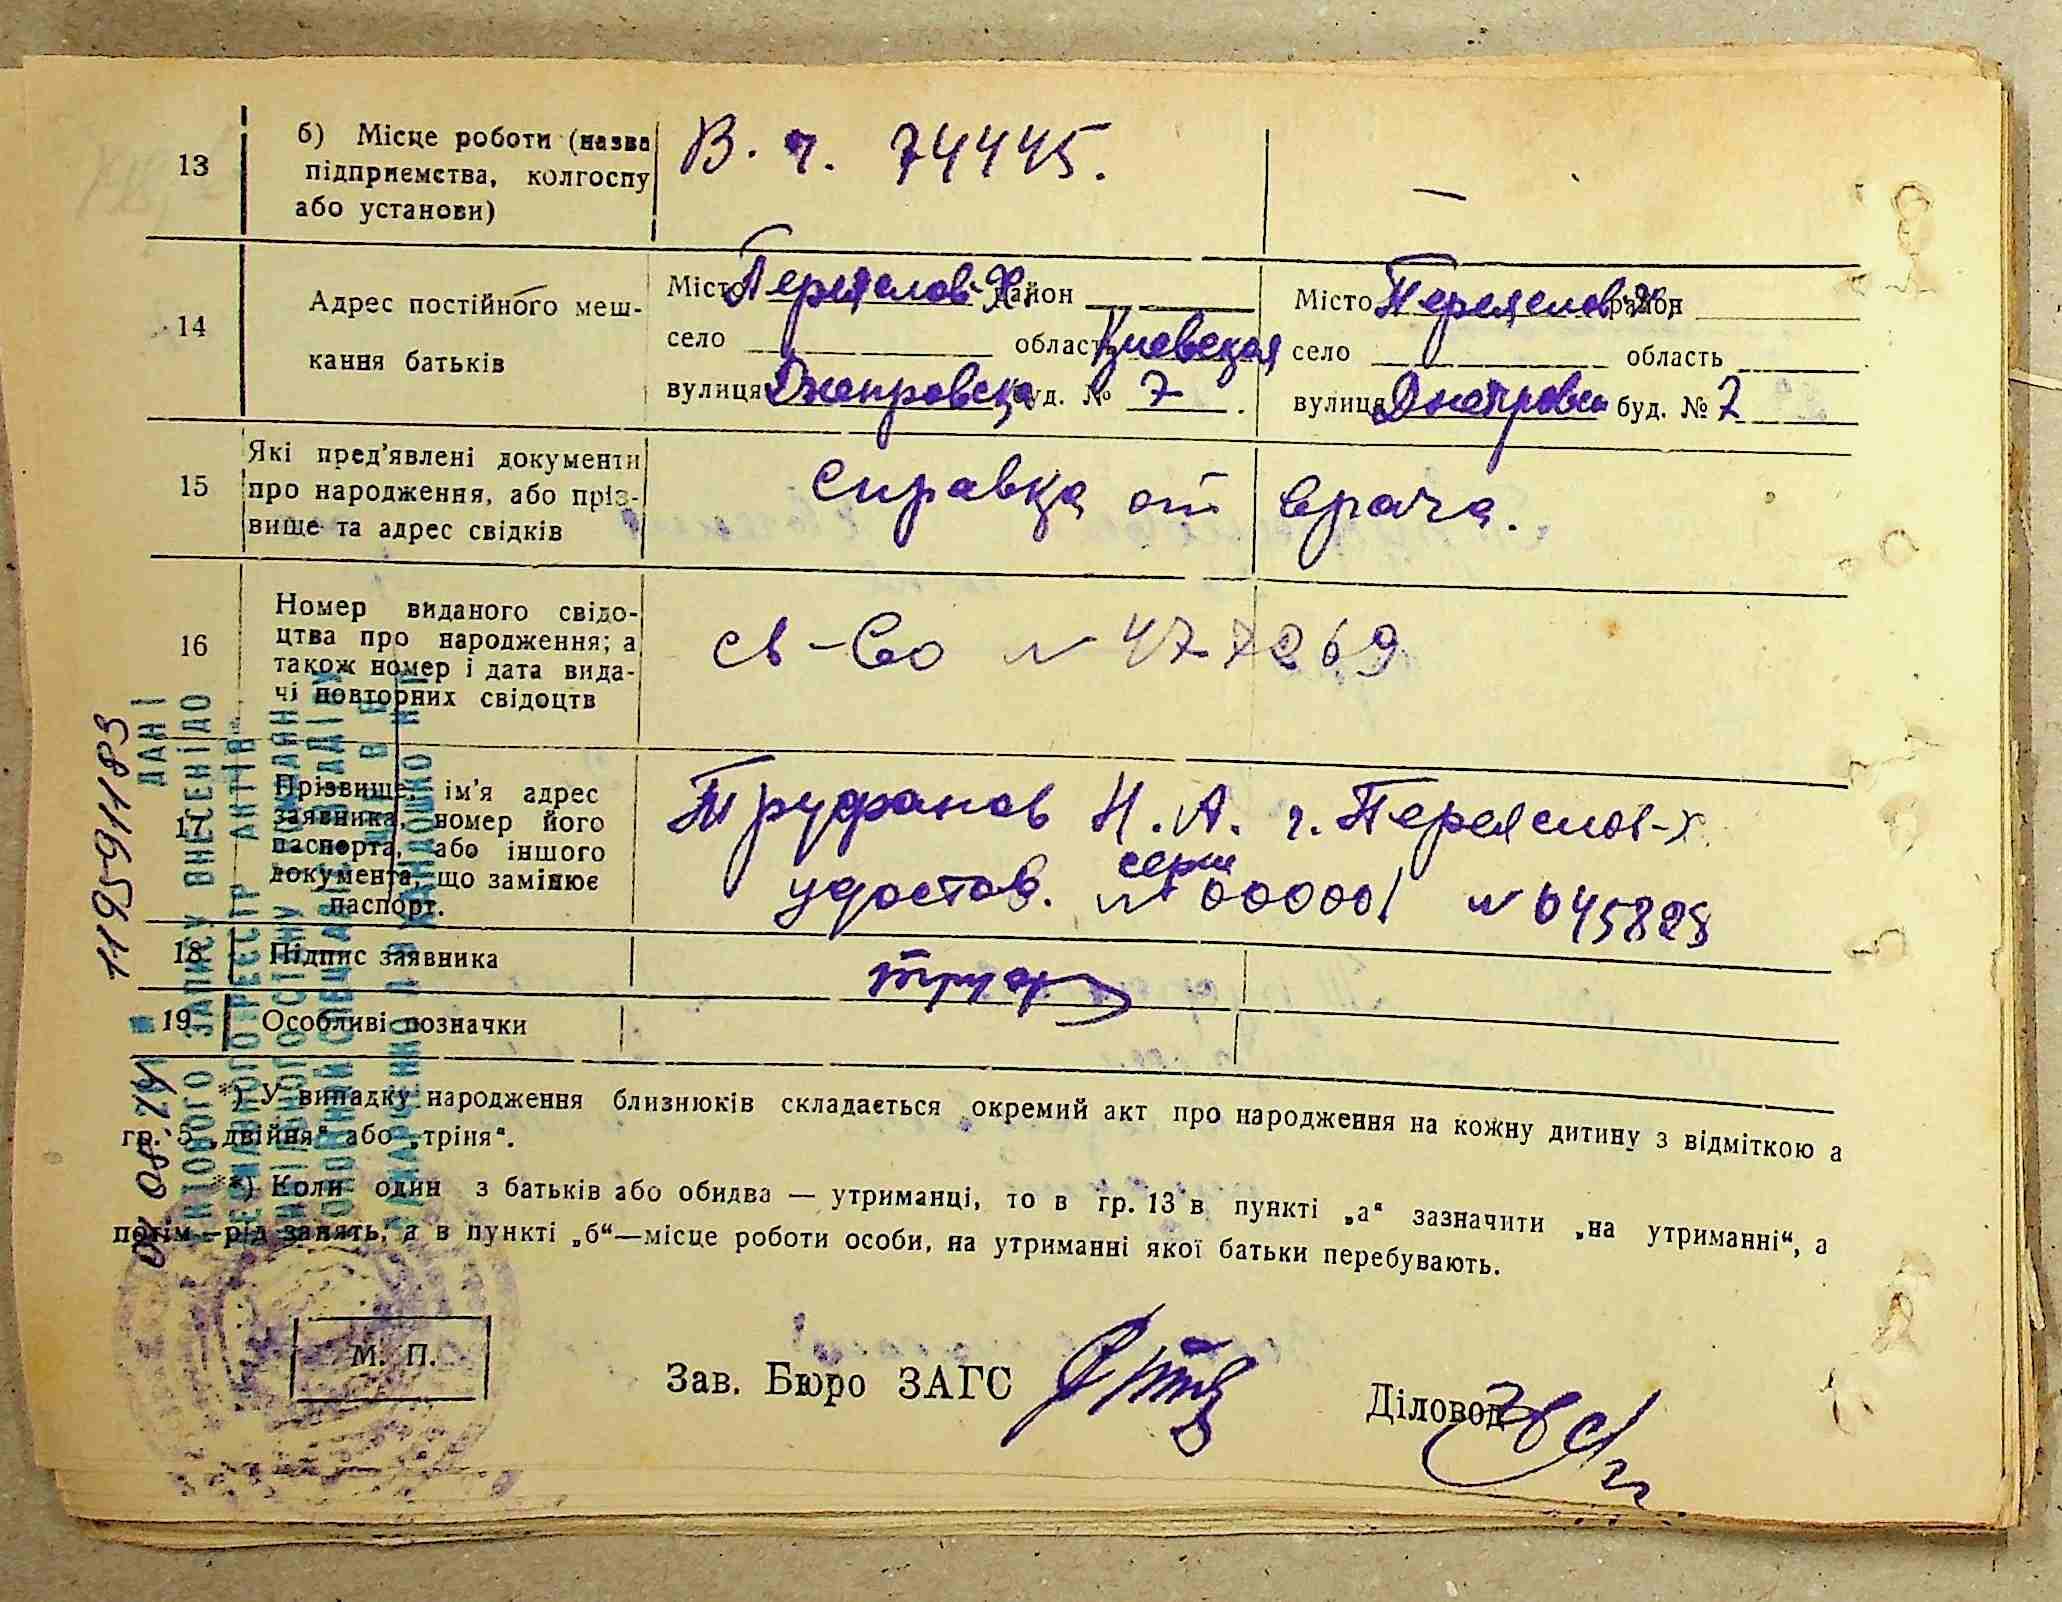 13
б) Місце роботи (назва
підприємства, колгоспу
або установи)
В. ч. 74445.
—
14
Адрес постійного меш-
кання батьків
Місто Переяслов-Х. район
село область Киевская
вулиця Днепровска буд. № 7.
Місто Переяслов-Х. район
село область
вулиця Днепровск буд. № 7
15
Які пред'явлені документи
про народження, або пріз-
вище та адрес свідків
Справка от врача.
16
Номер виданого свідо-
цтва про народження; а
також номер і дата вида-
чі повторних свідоцтв
св-во №
17
Прізвище, ім'я адрес
заявника, номер його
паспорта, або іншого
документа, що замінює
паспорт.
Труфанов Н. А. г. Переяслов-х.
серии
удостов. № 000001 №
18
Підпис заявника
Труф
19
Особливі позначки
*) У випадку народження близнюків складається окремий акт про народження на кожну дитину з відміткою а
гр. 5 „двійня“ або „тріня“.
**) Коли один з батьків або обидва — утриманці, то в гр. 13 в пункті „а“ зазначити „на утриманні“, а
потім—рід занять, а в пункті „б“—місце роботи особи, на утриманні якої батьки перебувають.
М. П.
Зав. Бюро ЗАГС
Діловод
1195911183
ДАНІ
АКТОВОГО ЗАПИСУ ВНЕСЕНІ ДО
ДЕРЖАВНОГО РЕЄСТР АКТІВ